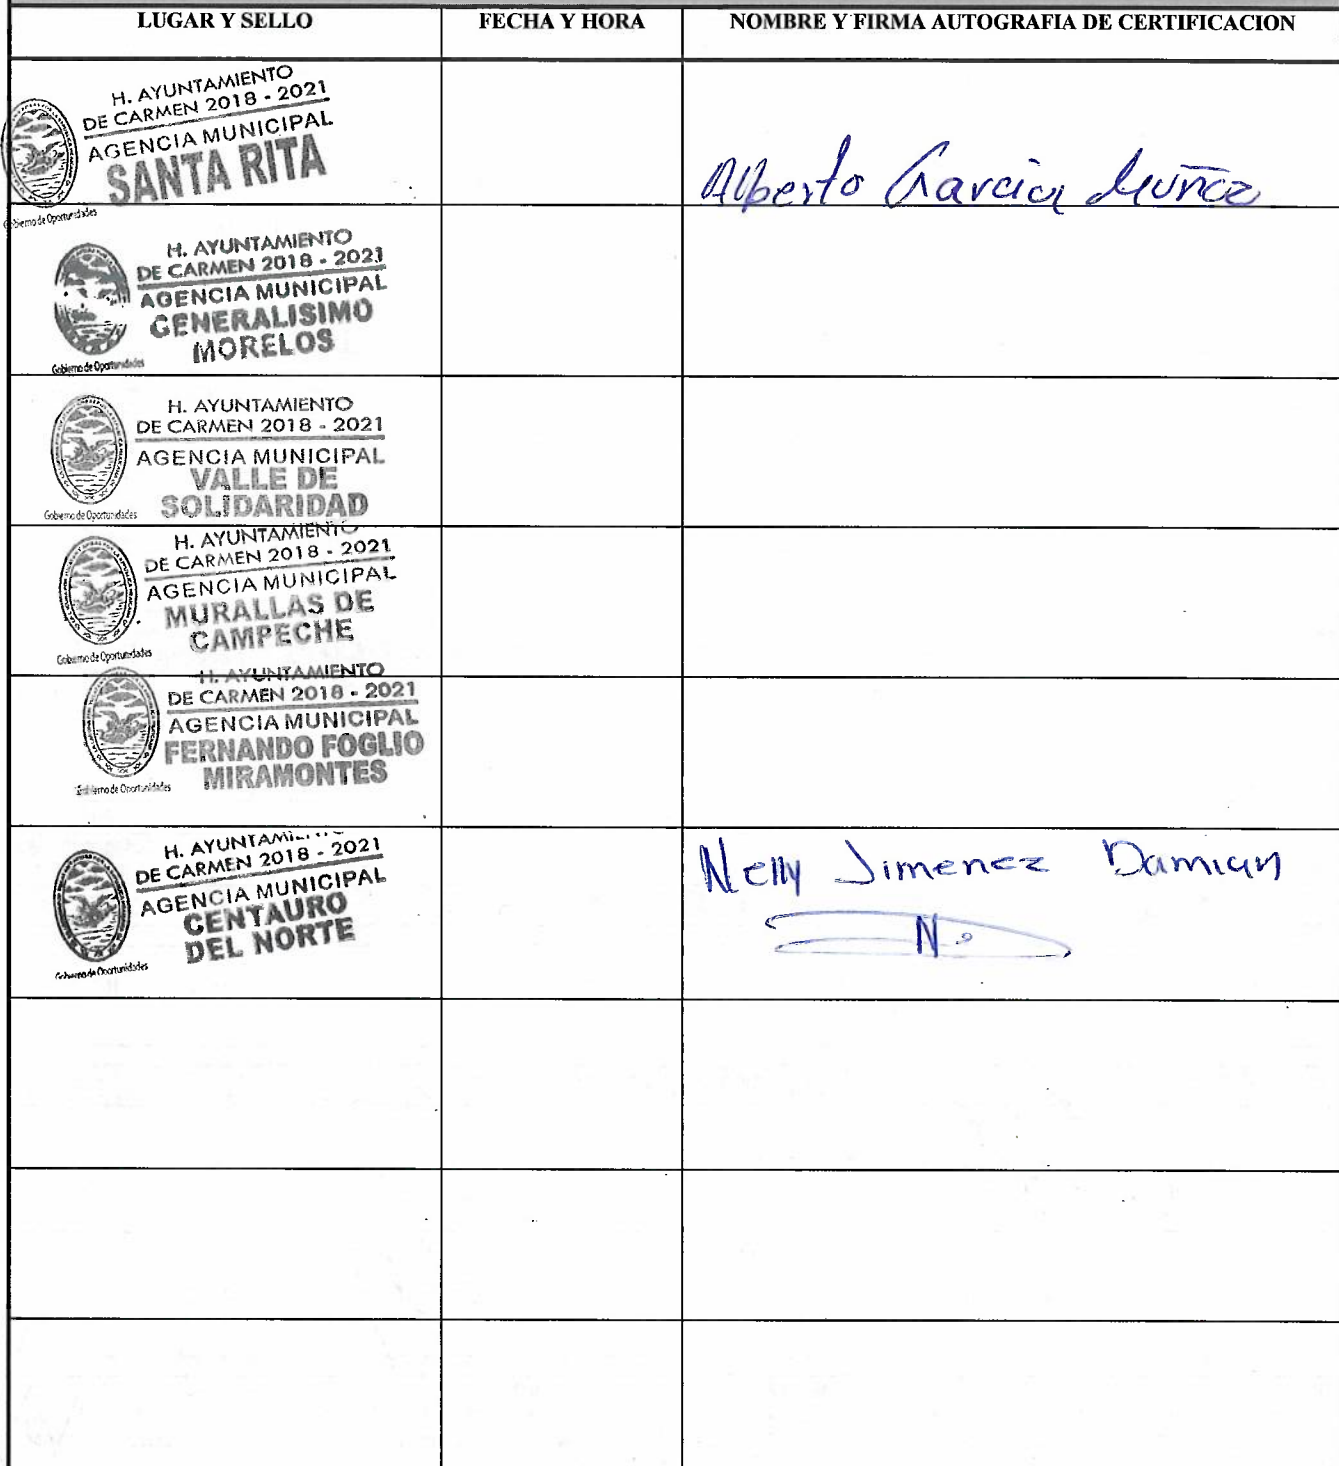 LUGAR Y SELLO FECHA Y HORA NOMBRE Y FIRMA AUTOGRAFIA DE CERTIFICACION
H. AYUNTAMIENTO
DE CARMEN 2018 - 2021
AGENCIA MUNICIPAL
SANTA RITA
Gobierno de Oportunidades
Alberto Garcia Muñoz
H. AYUNTAMIENTO
DE CARMEN 2018 - 2021
AGENCIA MUNICIPAL
GENERALISIMO
MORELOS
Gobierno de Oportunidades
H. AYUNTAMIENTO
DE CARMEN 2018 - 2021
AGENCIA MUNICIPAL
VALLE DE
SOLIDARIDAD
Gobierno de Oportunidades
H. AYUNTAMIENTO
DE CARMEN 2018 - 2021
AGENCIA MUNICIPAL
MURALLAS DE
CAMPECHE
Gobierno de Oportunidades
H. AYUNTAMIENTO
DE CARMEN 2018 - 2021
AGENCIA MUNICIPAL
FERNANDO FOGLIO
MIRAMONTES
Gobierno de Oportunidades
H. AYUNTAMIENTO
DE CARMEN 2018 - 2021
AGENCIA MUNICIPAL
CENTAURO
DEL NORTE
Gobierno de Oportunidades
Nelly Jimenez Damian
N